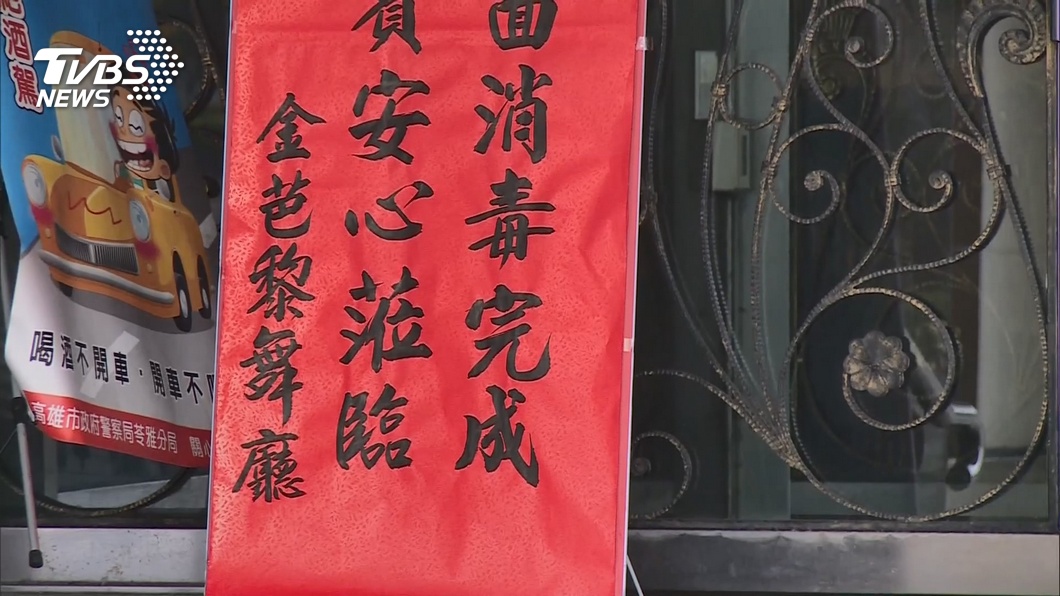 TVBS
NEWS
面消毒完成
貴安心蒞臨
金芭黎舞廳
酒駕
喝酒不開車·開車不
高雄市政府警察局苓雅分局 關心